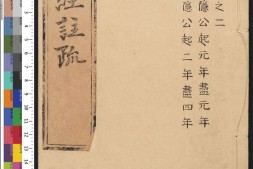 之二
隱公起元年盡元年
隱公起二年盡四年
註疏